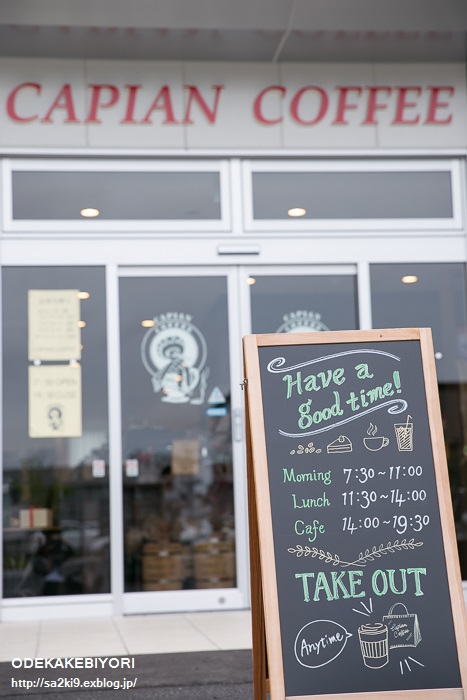 CAPIAN COFFEE
CAPIAN
COFFEE
CAPIAN
Have a
good time!
Morning 7:30~11:00
Lunch 11:30~14:00
Cafe 14:00~19:30
TAKE OUT
Anytime
Capian
Coffee
ODEKAKEBIYORI
http://sa2ki9.exblog.jp/